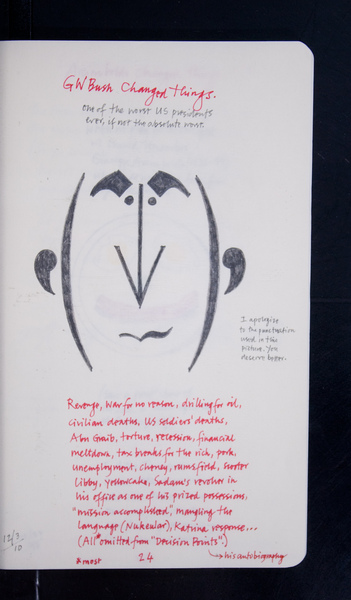 GW Bush Changed Things.
one of the worst US presidents
ever, if not the absolute worst.
I apologize
to the punctuation
used in this
picture. You
deserve better.
Revenge, war for no reason, drilling for oil,
civilian deaths, US soldiers' deaths,
Abu Graib, torture, recession, financial
meltdown, tax breaks for the rich, pork,
unemployment, cheney, rumsfield, scooter
Libby, yellowcake, Sadam's revolver in
his office as one of his prized possessions,
"mission accomplished", mangling the
language (Nukeular), Katrina response...
(All* omitted from "Decision Points".)
12/3
10
*most
24
→ his autobiography